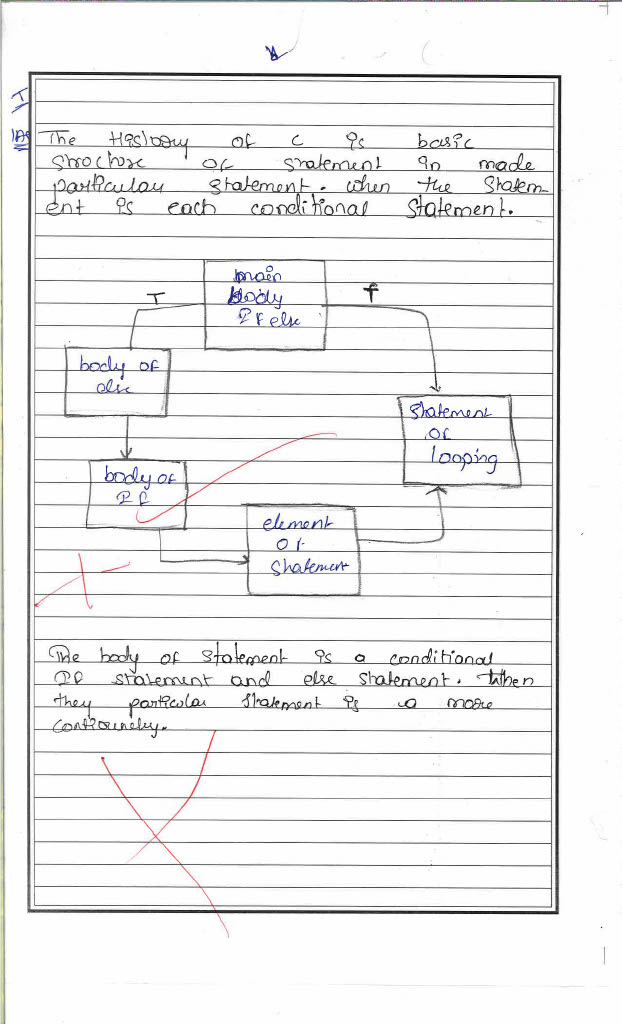 The History of C is basic
structure of statement in made
particular statement. when the Statem-
ent is each conditional Statement.
main
body
If else
T
f
body of
else
Statement
of
looping
body of
If
element
of
Statement
The body of statement is a conditional
If statement and else statement. When
they particular statement is a more